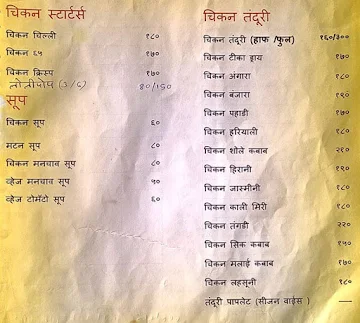 चिकन स्टार्टर्स
चिकन चिल्ली १८०
चिकन ६५ १७०
चिकन क्रिस्प १७०
80/150
सूप
चिकन सूप ६०
मटन सूप ८०
चिकन मनचाव सूप ८०
व्हेज मनचाव सूप ५०
व्हेज टोमॅटो सूप ६०
चिकन तंदूरी
चिकन तंदूरी (हाफ /फुल) १६०/३००
चिकन टीका ड्राय १७०
चिकन अंगारा १८०
चिकन बंजारा १९०
चिकन पहाडी १७०
चिकन हरियाली १८०
चिकन शोले कबाब २१०
चिकन हिरानी १९०
चिकन जास्मीनी १८०
चिकन काली मिरी १८०
चिकन तंगडी २२०
चिकन सिक कबाब १५०
चिकन मलाई कबाब १७०
चिकन लहसूनी १८०
तंदूरी पापलेट (सीजन वाईस )